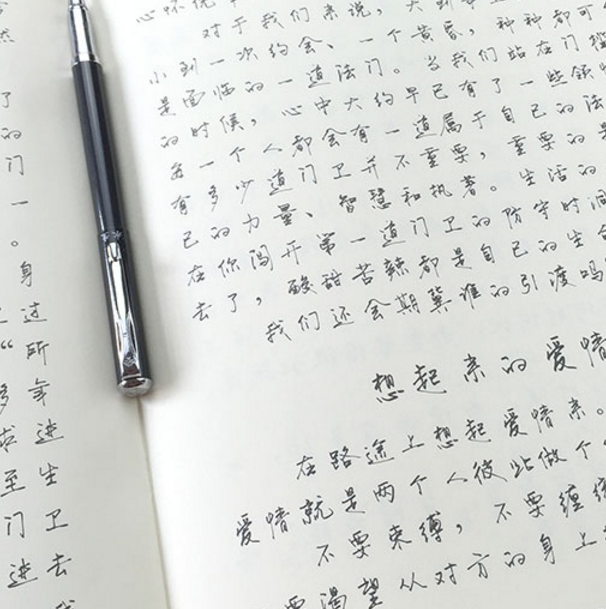 然
了
的
门
一
。
身
进
“所
多年
求进
至生
门卫
进去
对于我们来说，大到
小到一次约会、一个黄昏，种种都可
是面临的一道法门。当我们站在门
的时候，心中大约早已有了一些领
每一个人都会有一道属于自己的法
有多少道门卫并不重要，重要的是
己的力量、智慧和执著。生活的
在你闯开第一道门卫的防守时
去了，酸甜苦辣都是自己的生
我们还会期冀谁的引渡吗
想起来的爱情
在路途上想起爱情来。
爱情就是两个人彼此做个
不要束缚，不要缠绕
要渴望从对方的身上